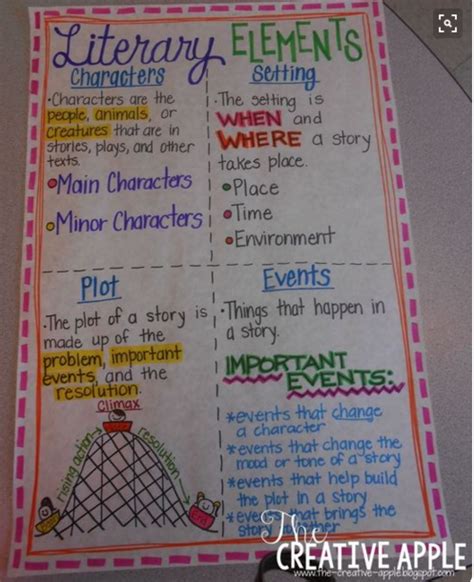 Literary ELEMENTS
Characters
•Characters are the
people, animals, or
creatures that are in
stories, plays, and other
texts.
•Main Characters
•Minor Characters
Setting
•The setting is
WHEN and
WHERE a story
takes place.
•Place
•Time
•Environment
Plot
•The plot of a story is
made up of the
problem, important
events, and the
resolution.
Climax
rising action
resolution
End
Events
•Things that happen in
a story.
IMPORTANT
EVENTS:
*events that change
a character
*events that change the
mood or tone of a story
*events that help build
the plot in a story
*events that brings the
story together
The
CREATIVE APPLE
www.the-creative-apple.blogspot.com